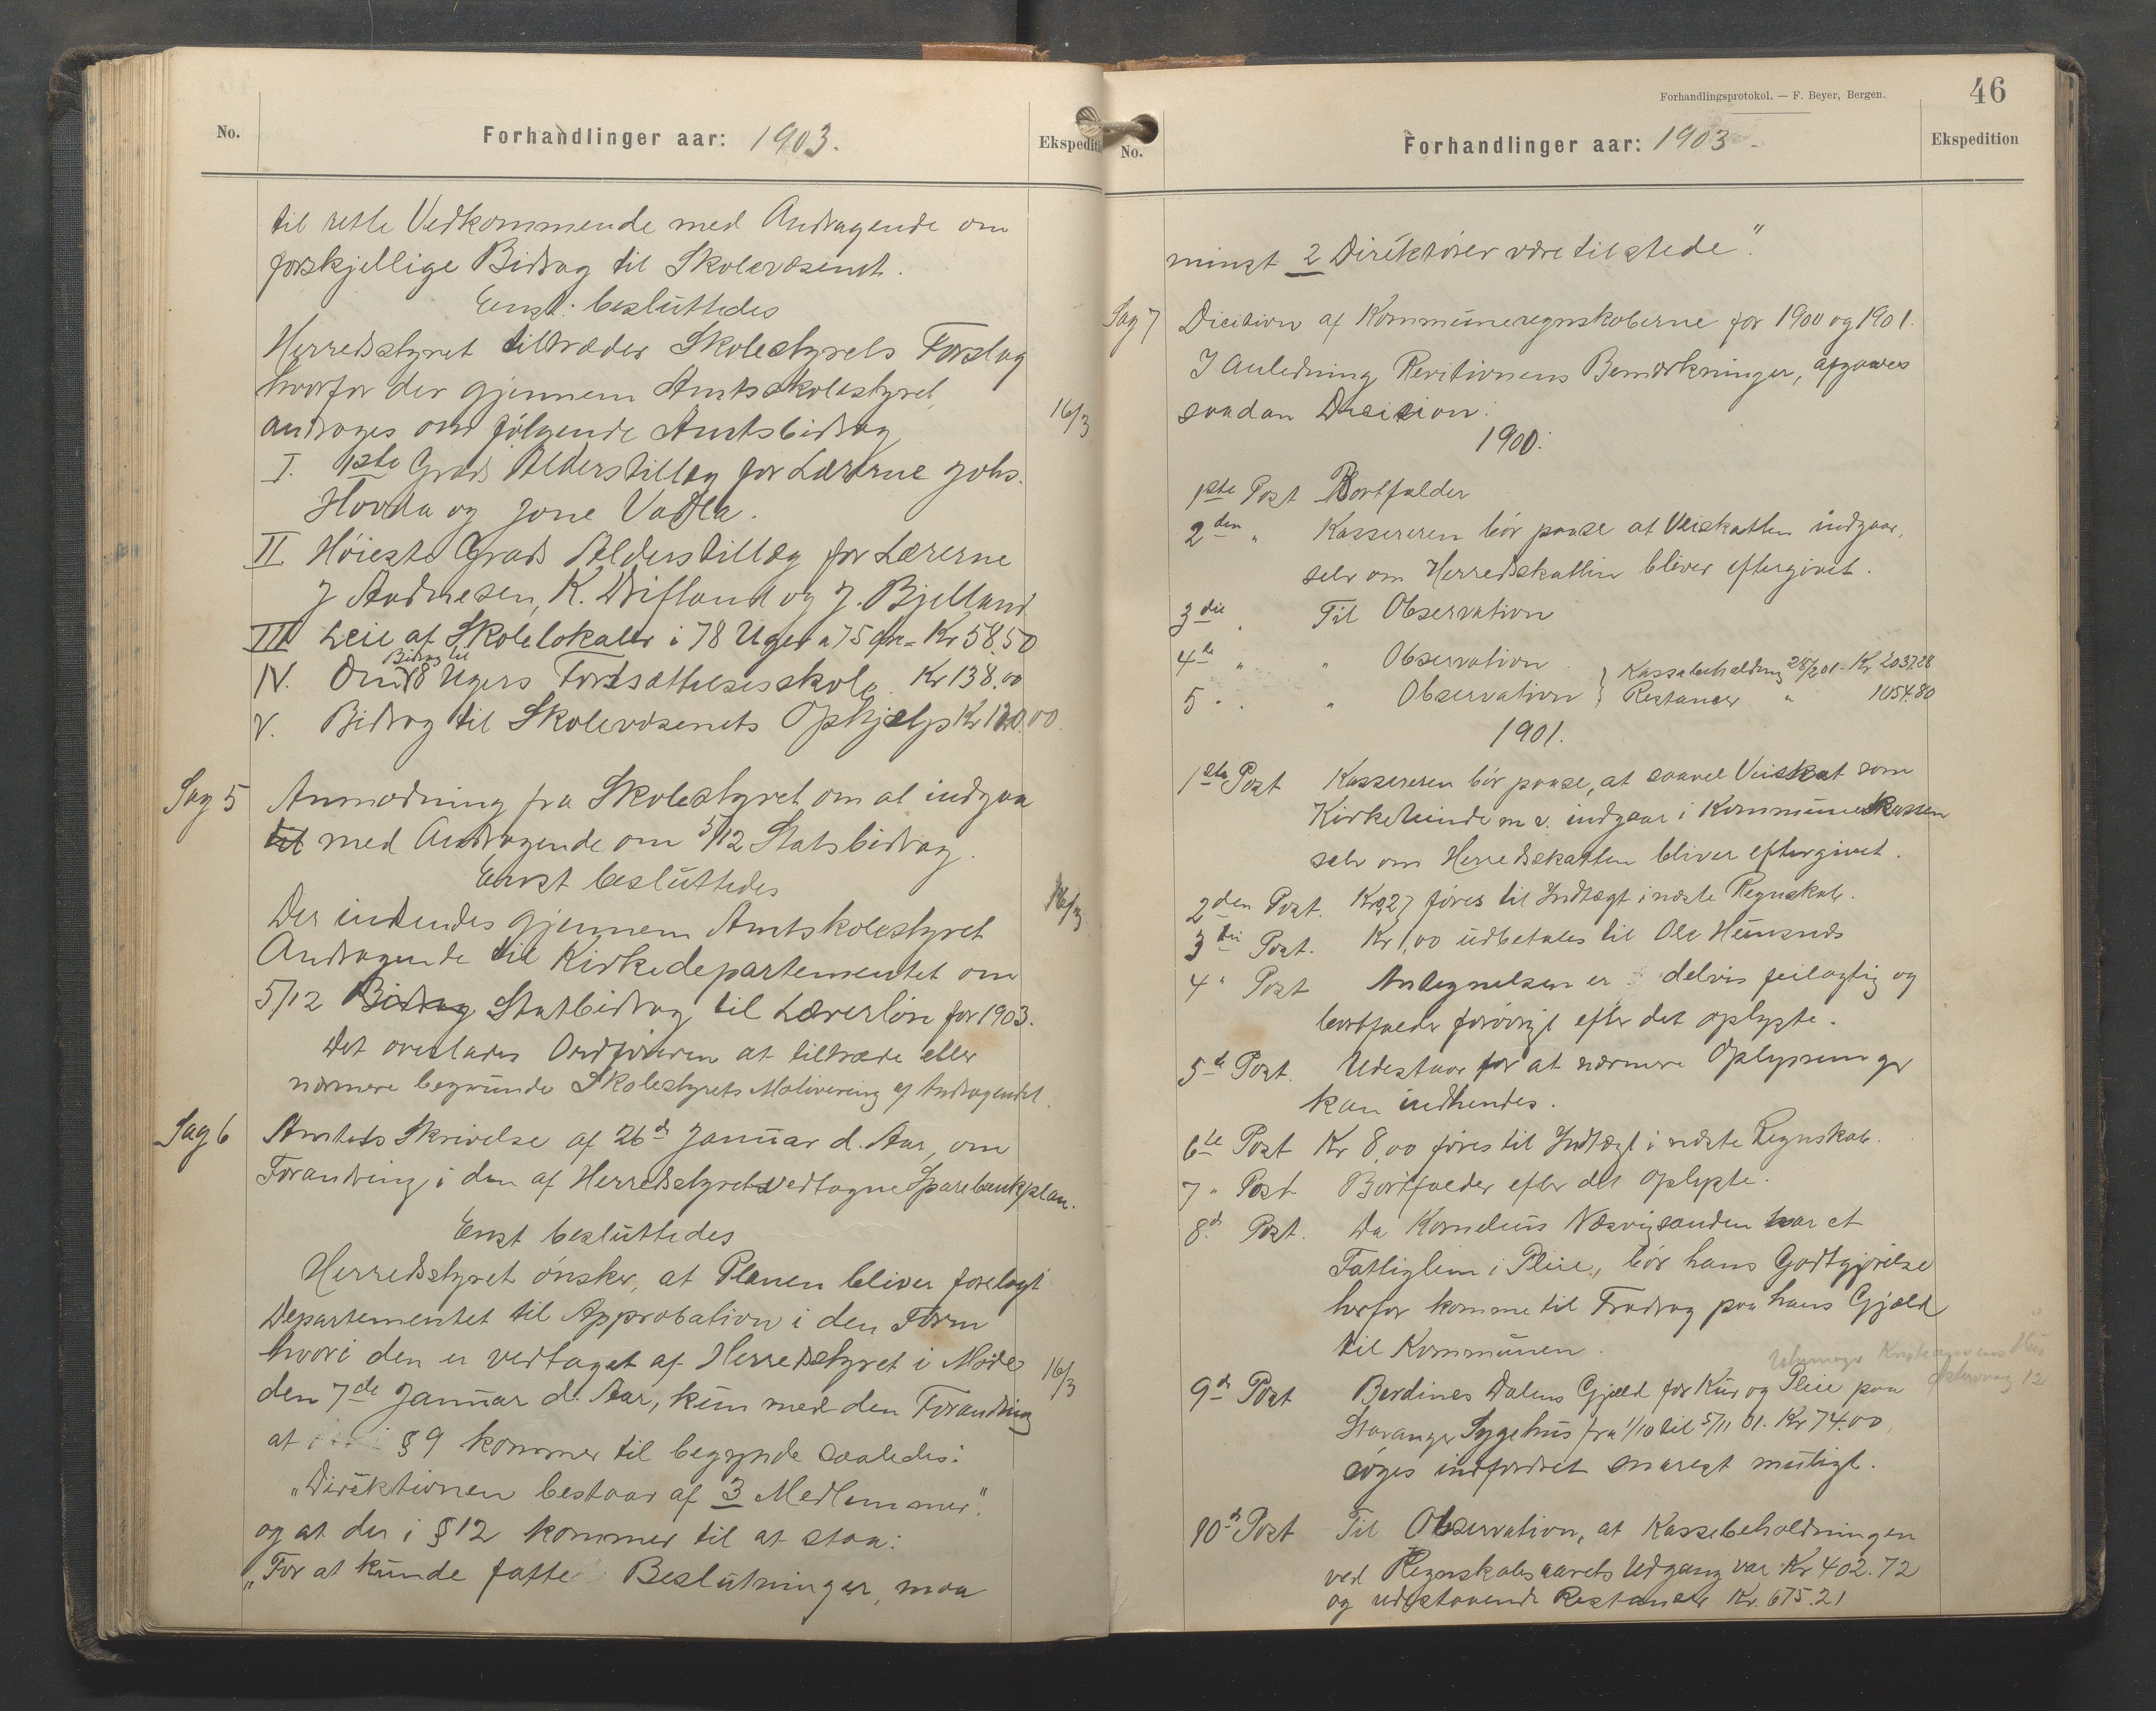 No.
Forhandlinger aar: 1903.
Ekspediti
til rette Vedkommende med Andragende om
forskjellige Bidrag til Skolevæsenet.
Enst: besluttedes
Herredsstyret tiltræder Skolestyrets Forslag
hvorfor der gjennem Amtsskolestyret,
andrages om følgende Amtsbidrag
16/3
I. 1ste Grads Alderstillæg for Lærerne Johs.
Hovda og Jone Vadla.
II Høieste Grads Alderstillæg for Lærerne
J Andresen, K. Drifland og J. Bjelland.
III Leie af Skolelokaler i 78 Uger a 75 øre = Kr 58.50
Bidrag til
IV. Om 18 Ugers Fortsættelsesskole. Kr 138.00
V. Bidrag til Skolevæsenets Ophjælp Kr 120.00
Sag 5 Anmodning fra Skolestyret om at indgaa
til med Andragende om 5/12 Statsbidrag.
Enst besluttedes
16/3
Der indsendes gjennem Amtskolestyret
Andragende til Kirkedepartementet om
5/12 Bidrag Statbidrag til Lærerløn for 1903.
Det overlades Ordføreren at tiltræde eller
nærmere begrunde Skolestyrets Motivering af Andragendet.
Sag 6 Amtets Skrivelse af 26de Januar d. Aar, om
Forandring i den af Herredsstyret vedtagne Sparebankplan.
Enst besluttedes
Herredsstyret ønsker, at Planen bliver forelagt
Departementet til Approbation i den Form
hvori den er vedtaget af Herredsstyret i Møde
16/3
den 7de Januar d. Aar, kun med den Forandring
at § 9 kommer til begynde saaledes:
"Direktionen bestaar af 3 Medlemmer".
og at der i § 12 kommer til at staa:
"For at kunde fatte Beslutninger, maa
Forhandlingsprotokol. — F. Beyer, Bergen.
46
No.
Forhandlinger aar: 1903
Ekspedition
minst 2 Direktører være tilstede".
Sag 7 Dicition af Kommuneregnskaberne for 1900 og 1901.
I Anledning Revitionens Bemærkninger, afgaves
saadan Decision:
1900:
1ste Post Bortfalder
2den " Kassereren bør paase at Veiskatten indgaar,
selv om Herredskatten bliver eftergivet.
3die " Til Observation
4de " " Observation
5 " " Observation } Kassabeholdning 28/2 01 - Kr 2037.28
Restancer " 1054.80
1901.
1ste Post Kassereren bør paase, at saavel Veiskat som
Kirketiende m v. indgaar i Kommunekassen
selv om Herredsskatten bliver eftergivet.
2den Post. Kr 0,27 føres til Indtægt i næste Regnskab.
3die Post. Kr 1,00 udbetales til Ole
4 " Post Antegnelsen er delvis feilagtig og
bortfalder forøvrigt efter det oplyste.
5te Post. Udestaar for at nærmere Oplysninger
kan indhendes.
6te Post Kr 8,00 føres til Indtægt i næste Regnskab.
7 " Post Bortfalder efter det oplyste.
8de Post. Da Kornelius Næsvigsanden har et
Fattiglem i Pleie, bør hans Godtgjørelse
herfor komme til Fradrag paa hans Gjæld
til Kommunen.
9de Post Berdines Dalens Gjæld for Kur og Pleie paa
Stavanger Sygehus fra 1/10 til 5/11 01. Kr 74.00,
søges indfordret snarest muligt.
10de Post Til Observation, at Kassebeholdningen
ved Regnskabsaarets Udgang var Kr 402.72
og udestaaende Restancer Kr. 675.21